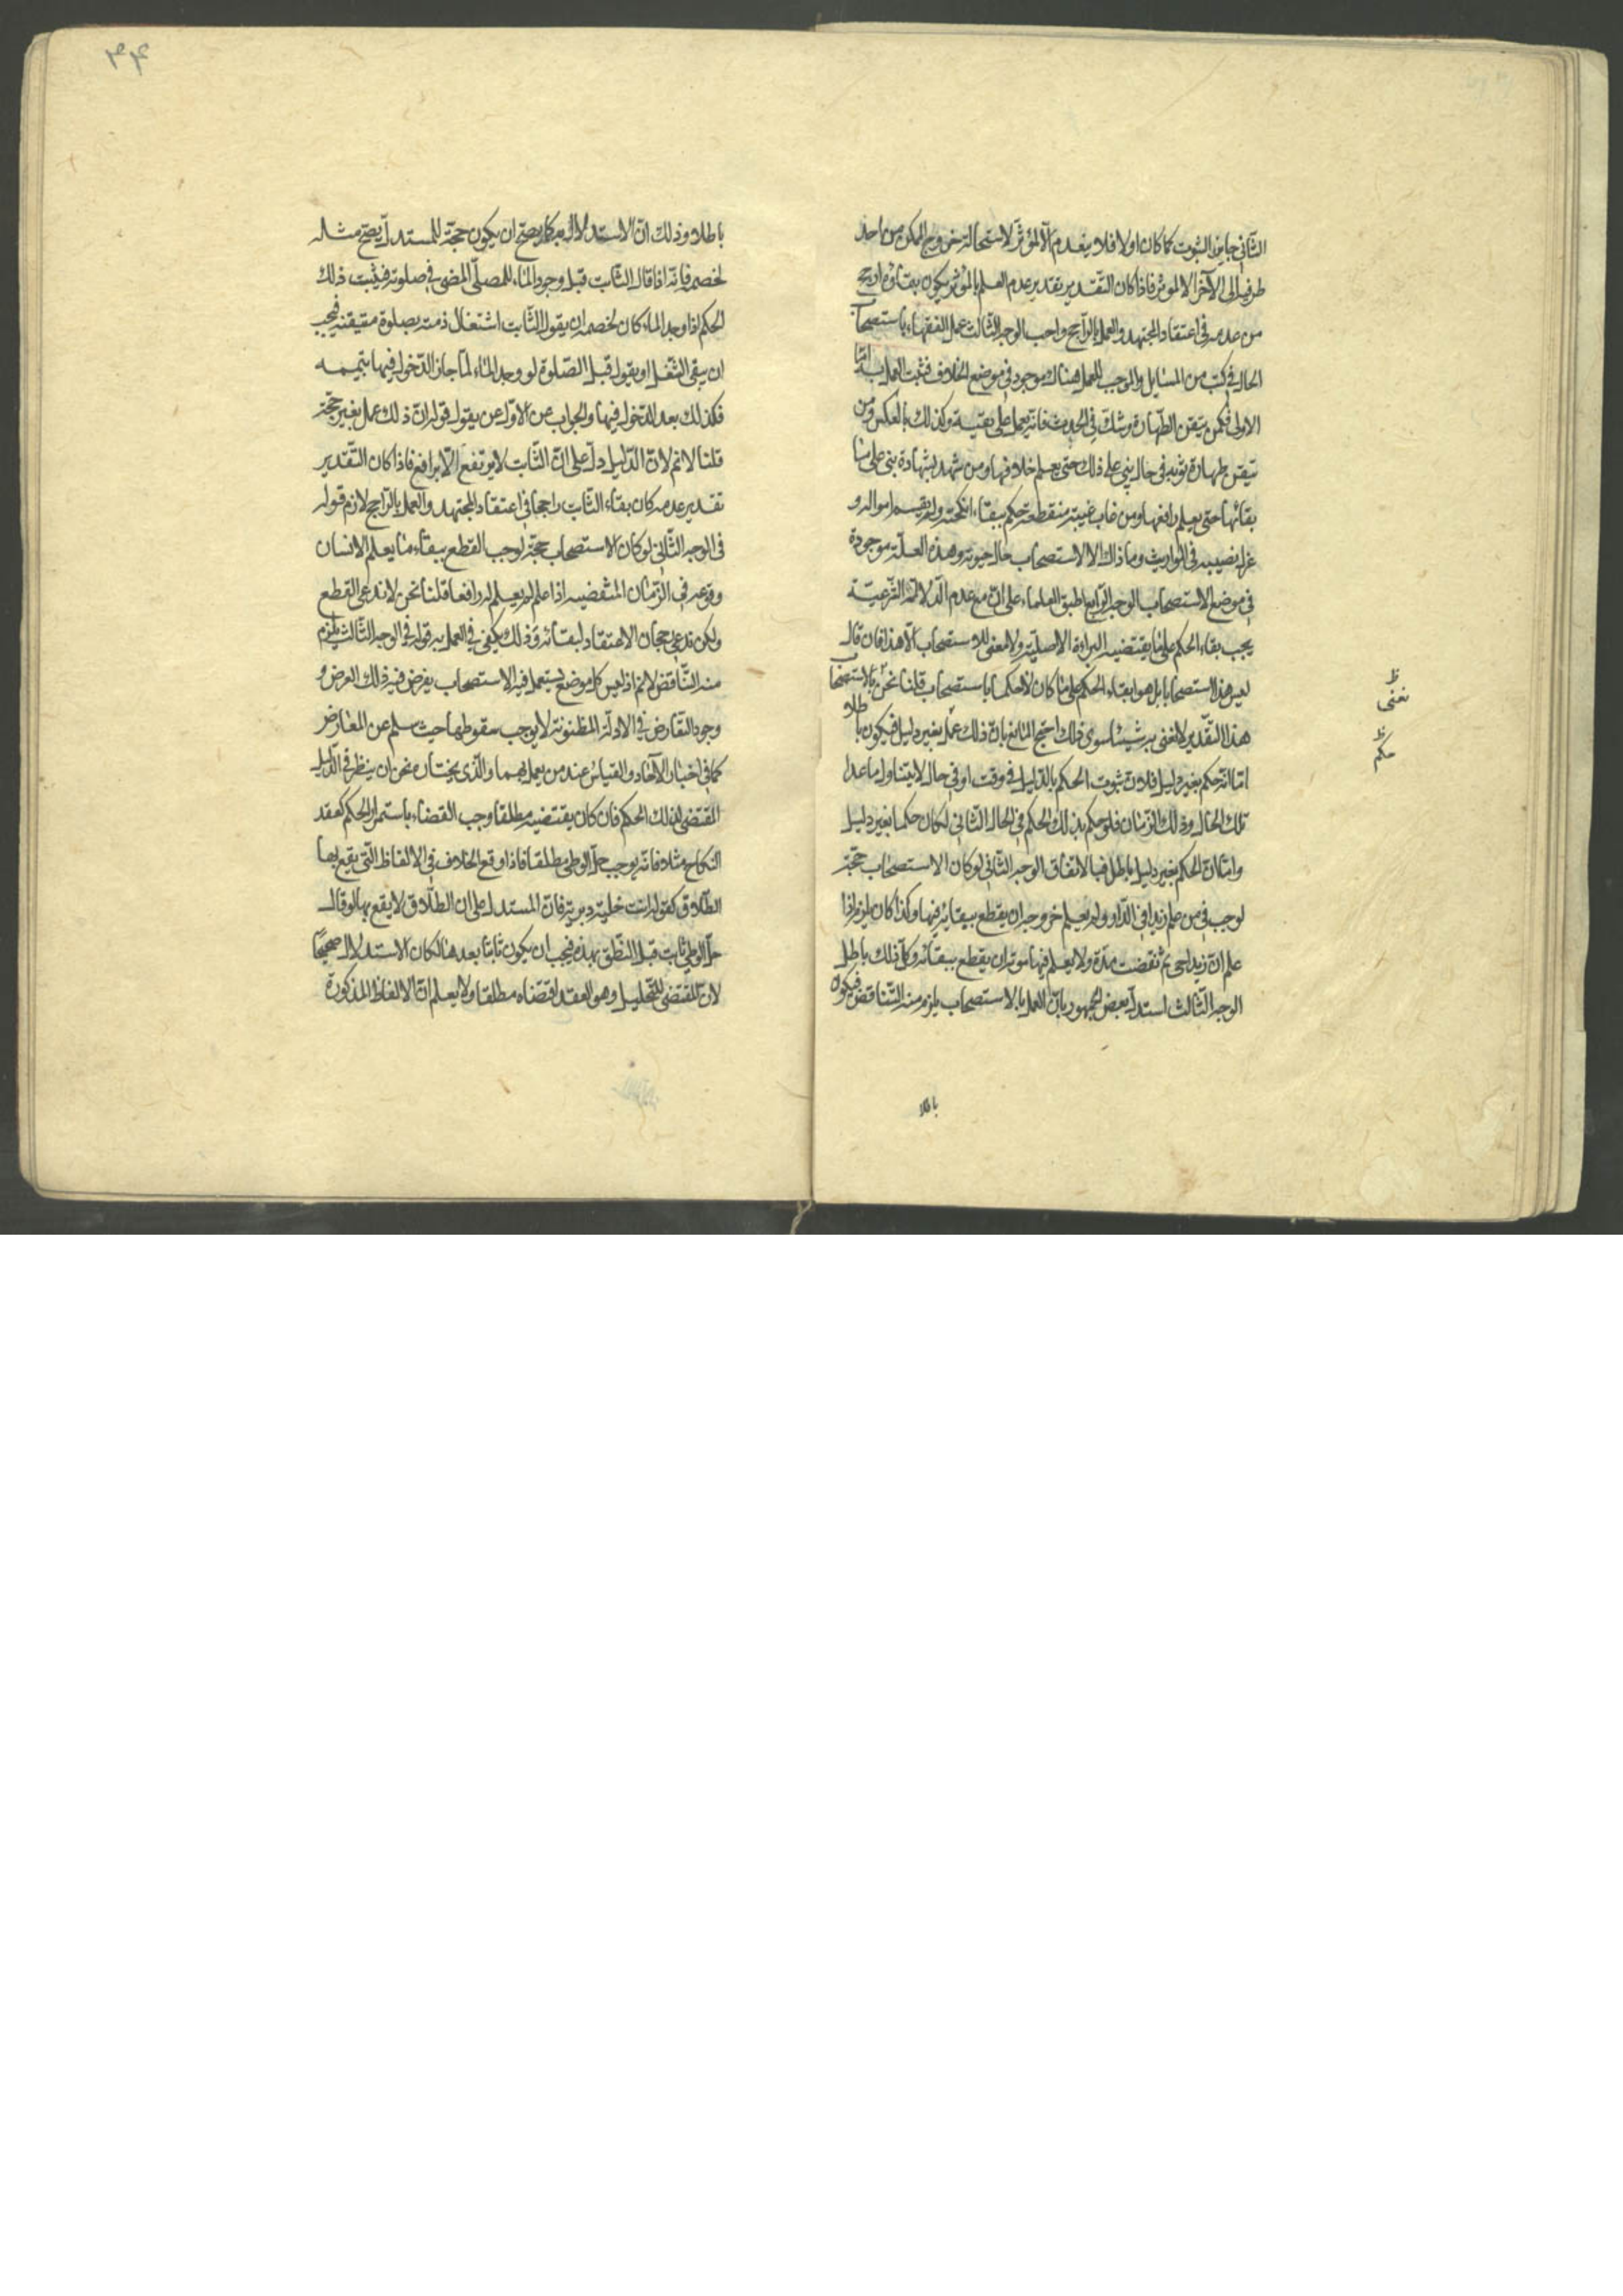 الثاني جايز الثبوت كما كان اولا فلا ينعدم الا لمؤثر لاستحالة خروج الممكن من احد
طرفيه الى الآخر الا لمؤثر فاذا كان التقدير تقدير عدم العلم بالمؤثر يكون بقاؤه ارجح
من عدمه في اعتقاد المجتهد والعمل بالراجح واجب الوجه الثالث عمل الفقهاء باستصحاب
الحال في كثير من المسايل والموجب للعمل هناك موجود في موضع الخلاف فثبت العمل به اما
الاولى فكمن تيقن الطهارة وشك في الحدث فانه يعمل على يقينه وكذلك بالعكس ومن
تيقن طهارة ثوبه في حال بنى على ذلك حتى يعلم خلافها ومن شهد بشهادة بنى على
بقائها حتى يعلم رافعها ومن غاب غيبة منقطعة حكم ببقاء انكحته ولم يقسم امواله و
عزل نصيبه في المواريث وما ذاك الا لاستصحاب حال حيوته وهذه العلة موجودة
في موضع الاستصحاب الوجه الرابع اطبق العلماء على ان مع عدم الدلالة الشرعية
يجب بقاء الحكم على ما يقتضيه البراءة الاصلية ولا معنى للاستصحاب الا هذا فان قال
ليس هذا استصحابا بل هو ابقاء الحكم على ما كان لا حكما باستصحاب قلنا نحن بالاستصحاب
هذا التقدير لا نعنى به شيئا سوى ذلك احتج المانع بان ذلك عمل بغير دليل فيكون باطلا
اما انه حكم بغير دليل فلان ثبوت الحكم بالدليل في وقت او في حال لا يتناول ما عدا
تلك الحال وذلك الزمان فلو حكم بذلك الحكم في الحال الثاني لكان حكما بغير دليل
واما ان الحكم بغير دليل باطل فبالاتفاق الوجه الثاني لو كان الاستصحاب حجة
لوجب فيمن علم زيدا في الدار ولم يعلم خروجه ان يقطع ببقائه فيها وكذا كان يلزم اذا
علم ان زيدا حي ثم تقضت مدة ولا يعلم فيها موته ان يقطع ببقائه وكل ذلك باطل
الوجه الثالث استدل بعض الجمهور بان العمل بالاستصحاب يلزم منه التناقض فيكون
ظ
نعنى
ظ
حكم
باطلا
۴۴
باطلا وذلك ان الاستدلال به كما يصح ان يكون حجة للمستدل يصح مثله
لخصمه فانه اذا قال الثابت قبل وجود الماء للمصلي المضي في صلوته فيثبت ذلك
الحكم اذا وجد الماء كان لخصمه ان يقول الثابت اشتغال ذمته بصلوة متيقنه فيجب
ان يبقى الشغل او يقول قبل الصلوة لو وجد الماء لما جاز الدخول فيها بتيممه
فكذلك بعد الدخول فيها والجواب عن الاول عن يقول قوله ان ذلك عمل بغير حجة
قلنا لا نم لان الدليل دل على ان الثابت لا يرتفع الا برافع فاذا كان التقدير
تقدير عدمه كان بقاء الثابت راجحا في اعتقاد المجتهد والعمل بالراجح لازم قوله
في الوجه الثاني لو كان الاستصحاب حجة لوجب القطع ببقاء ما يعلم الانسان
وقوعه في الزمان المنقضيه اذا علم لم يعلم له رافعا قلنا نحن لا ندعى القطع
ولكن ندعى رجحان الاعتقاد لبقائه وذلك يكفى في العمل به قوله في الوجه الثالث يلزم
منه التناقض لا نم اذ ليس كل موضع يستعمل فيه الاستصحاب يفرض فيه ذلك العرض و
وجود التعارض في الادلة المظنونة لا يوجب سقوطها حيث سلم عن المعارض
كما في اخبار الآحاد والقياس عند من يعمل بهما والذى نختاره نحن ان ينظر في الدليل
المقتضى لذلك الحكم فان كان يقتضيه مطلقا وجب القضاء باستمرار الحكم كعقد
النكاح مثلا فانه يوجب حل الوطي مطلقا فاذا وقع الخلاف في الالفاظ التي يقع بها
الطلاق كقوله انت خلية وبرية فان المستدل على ان الطلاق لا يقع بها لو قال
حل الوطي ثابت قبل النطق بهذه فيجب ان يكون ثابتا بعدها لكان الاستدلال صحيحا
لان المقتضى للتحليل وهو العقد اقتضاه مطلقا ولا يعلم ان الالفاظ المذكورة